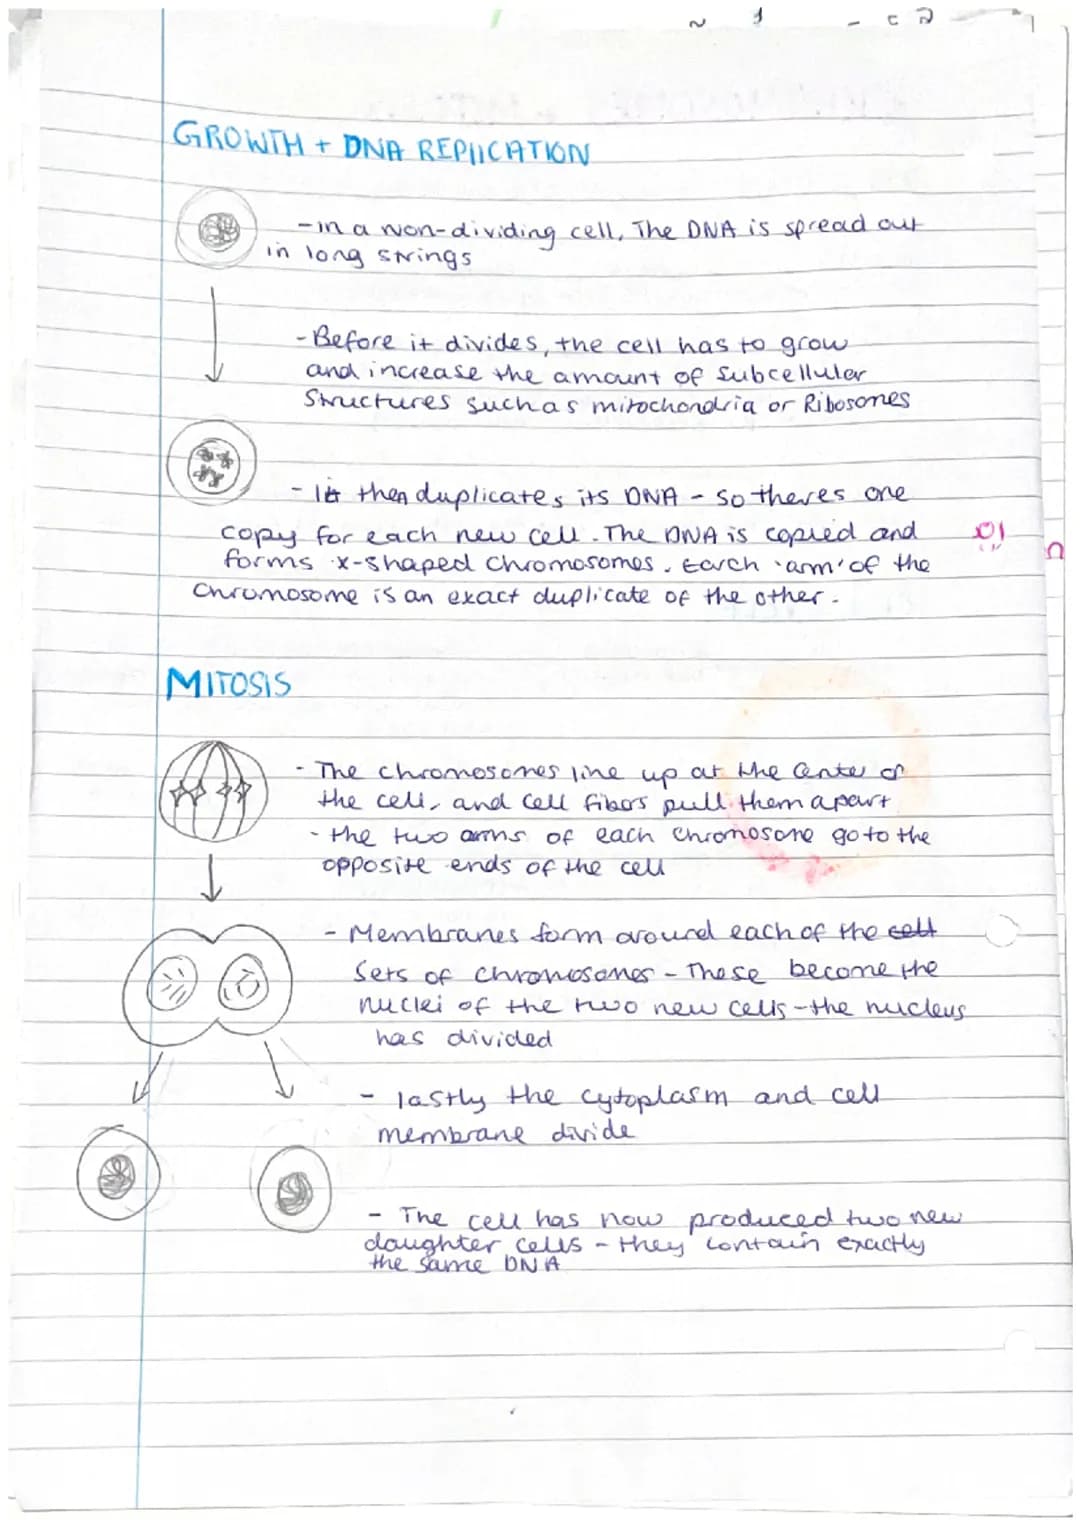 GROWTH + DNA REPLICATION
- In a non-dividing cell, The DNA is spread out
in long strings
- Before it divides, the cell has to grow
and increase the amount of subcellular
Structures such as mitochondria or Ribosomes
- It then duplicates its DNA - so theres one
copy for each new cell. The DNA is copied and
forms x-shaped chromosomes. Each 'arm' of the
Chromosome is an exact duplicate of the other.
MITOSIS
- The chromosomes line up at the center of
the cell, and cell fibers pull them apart
- the two arms of each chromosome go to the
opposite ends of the cell
- Membranes form around each of the cell
Sets of chromosomes - These become the
nuclei of the two new cells - the nucleus
has divided
- lastly the cytoplasm and cell
membrane divide
- The cell has now produced two new
daughter cells - they contain exactly
the same DNA